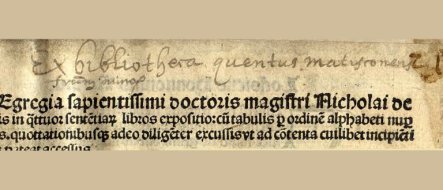 Ex bibliotheca quentus matisconens
fratrum minor
Egregia sapientissimi doctoris magistri Nicholai de
is in q̃ttuor sentẽtiaꝝ libros expositio: cũ tabulis ꝑ ordinẽ alphabeti nuꝑ
s. quottationibusqꝫ adeo diligẽter excussis vt ad cõtenta cuilibet incipiẽti
pateat accessus